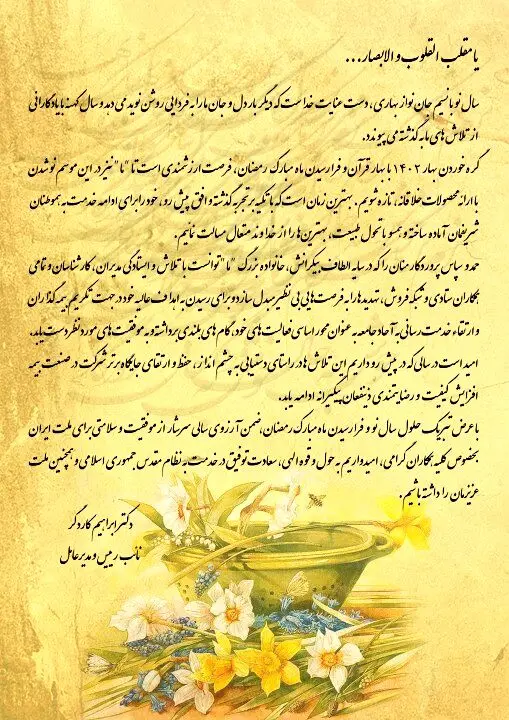 یا مقلب القلوب والابصار...
سال نو با نسیم جان نواز بهاری، دست عنایت خداست که دیگر بار دل و جان ما را به فردایی روشن نوید می دهد و سال کهنه با یادگارانی
از تلاش های ما به گذشته می پیوندد.
گره خوردن بهار ۱۴۰۲ با بهار قرآن و فرارسیدن ماه مبارک رمضان، فرصت ارزشمندی است تا "ما" نیز در این موسم نو شدن
با ارائه محصولات خلاقانه، تازه شویم. بهترین زمان است که با تکیه بر تجربه گذشته و افق پیش رو، خود را برای ادامه خدمت به هموطنان
شریفمان آماده ساخته و همسو با تحول طبیعت، بهترین ها را از خداوند متعال مسالت نمائیم.
حمد و سپاس پروردگار منان را که در سایه الطاف بیکرانش، خانواده بزرگ "ما" توانست با تلاش و ایستادگی مدیران، کارشناسان و تمامی
همکاران ستادی و شبکه فروش، تهدیدها را به فرصت هایی بی نظیر مبدل سازد و برای رسیدن به اهداف عالیه خود در جهت تکریم بیمه گذاران
و ارتقاء خدمت رسانی به آحاد جامعه به عنوان محور اساسی فعالیت های خود، گام های بلندی برداشته و به موفقیت های مورد نظر دست یابد.
امید است در سالی که در پیش رو داریم این تلاش ها در راستای دستیابی به چشم انداز، حفظ و ارتقای جایگاه برتر شرکت در صنعت بیمه
افزایش کیفیت و رضایتمندی ذینفعان پیگیرانه ادامه یابد.
با عرض تبریک حلول سال نو و فرارسیدن ماه مبارک رمضان، ضمن آرزوی سالی سرشار از موفقیت و سلامتی برای ملت ایران
بخصوص کلیه همکاران گرامی، امیدواریم به حول و قوه الهی، سعادت توفیق در خدمت به نظام مقدس جمهوری اسلامی و همچنین ملت
عزیزمان را داشته باشیم.
دکتر ابراهیم کاردگر
نائب رییس و مدیرعامل